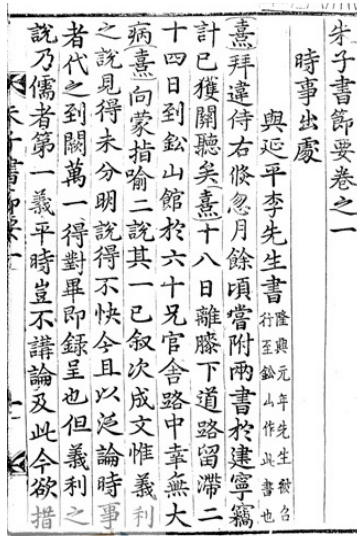 朱子書節要卷之一
時事出處
與延平李先生書 隆興元年先生被召行至鉛山作此書也
熹拜違侍右倐忽月餘頃嘗附兩書於建寧竊
計已獲關聽矣熹十八日離膝下道路留滯二
十四日到鉛山館於六十兄官舎路中幸無大
病熹向蒙指喻二說其一已叙次成文惟義利
之說見得未分明說得不快今且以泛論時事
者代之到闕萬一得對畢即録呈也但義利之
說乃儒者第一義平時豈不講論及此今欲措
朱子書節要一